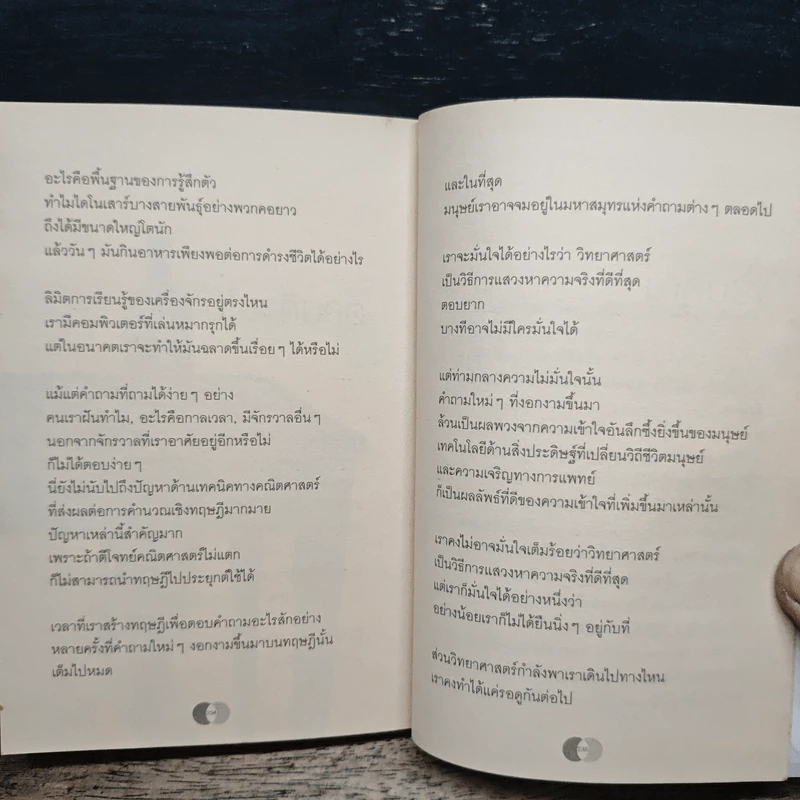 อะไรคือพื้นฐานของการรู้สึกตัว
ทำไมไดโนเสาร์บางสายพันธุ์อย่างพวกคอยาว
ถึงได้มีขนาดใหญ่โตนัก
แล้ววัน ๆ มันกินอาหารเพียงพอต่อการดำรงชีวิตได้อย่างไร
ลิมิตการเรียนรู้ของเครื่องจักรอยู่ตรงไหน
เรามีคอมพิวเตอร์ที่เล่นหมากรุกได้
แต่ในอนาคตเราจะทำให้มันฉลาดขึ้นเรื่อย ๆ ได้หรือไม่
แม้แต่คำถามที่ถามได้ง่าย ๆ อย่าง
คนเราฝันทำไม, อะไรคือกาลเวลา, มีจักรวาลอื่น ๆ
นอกจากจักรวาลที่เราอาศัยอยู่อีกหรือไม่
ก็ไม่ได้ตอบง่าย ๆ
นี่ยังไม่นับไปถึงปัญหาด้านเทคนิคทางคณิตศาสตร์
ที่ส่งผลต่อการคำนวณเชิงทฤษฎีมากมาย
ปัญหาเหล่านี้สำคัญมาก
เพราะถ้าตีโจทย์คณิตศาสตร์ไม่แตก
ก็ไม่สามารถนำทฤษฎีไปประยุกต์ใช้ได้
เวลาที่เราสร้างทฤษฎีเพื่อตอบคำถามอะไรสักอย่าง
หลายครั้งที่คำถามใหม่ ๆ งอกงามขึ้นมาบนทฤษฎีนั้น
เต็มไปหมด
และในที่สุด
มนุษย์เราอาจจมอยู่ในมหาสมุทรแห่งคำถามต่าง ๆ ตลอดไป
เราจะมั่นใจได้อย่างไรว่า วิทยาศาสตร์
เป็นวิธีการแสวงหาความจริงที่ดีที่สุด
ตอบยาก
บางทีอาจไม่มีใครมั่นใจได้
แต่ท่ามกลางความไม่มั่นใจนั้น
คำถามใหม่ ๆ ที่งอกงามขึ้นมา
ล้วนเป็นผลพวงจากความเข้าใจอันลึกซึ้งยิ่งขึ้นของมนุษย์
เทคโนโลยีด้านสิ่งประดิษฐ์ที่เปลี่ยนวิถีชีวิตมนุษย์
และความเจริญทางการแพทย์
ก็เป็นผลลัพธ์ที่ดีของความเข้าใจที่เพิ่มขึ้นมาเหล่านั้น
เราคงไม่อาจมั่นใจเต็มร้อยว่าวิทยาศาสตร์
เป็นวิธีการแสวงหาความจริงที่ดีที่สุด
แต่เราก็มั่นใจได้อย่างหนึ่งว่า
อย่างน้อยเราก็ไม่ได้ยืนนิ่ง ๆ อยู่กับที่
ส่วนวิทยาศาสตร์กำลังพาเราเดินไปทางไหน
เราคงทำได้แค่รอดูกันต่อไป